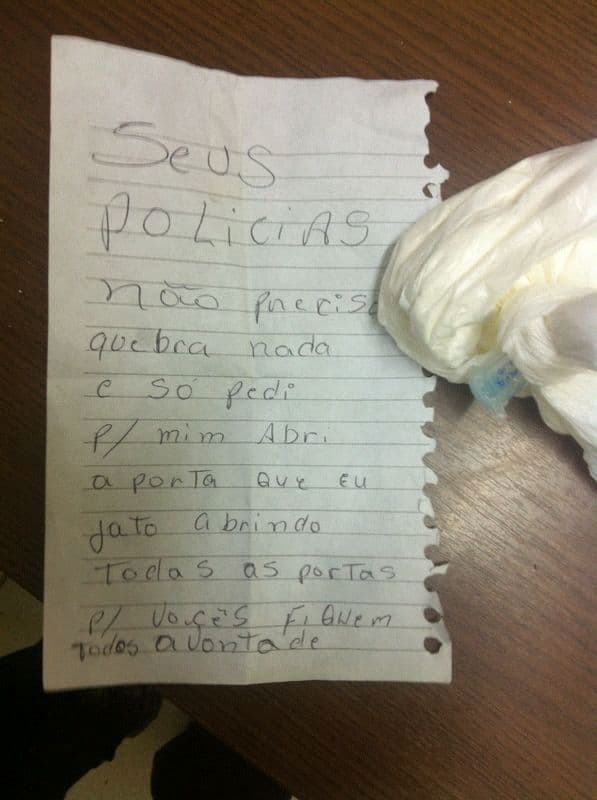 Seus
POLICIAS
não precisa
quebra nada
e só pedi
p/ mim Abri
a porta que eu
jato abrindo
Todas as portas
p/ vocês Fiquem
Todos avontade